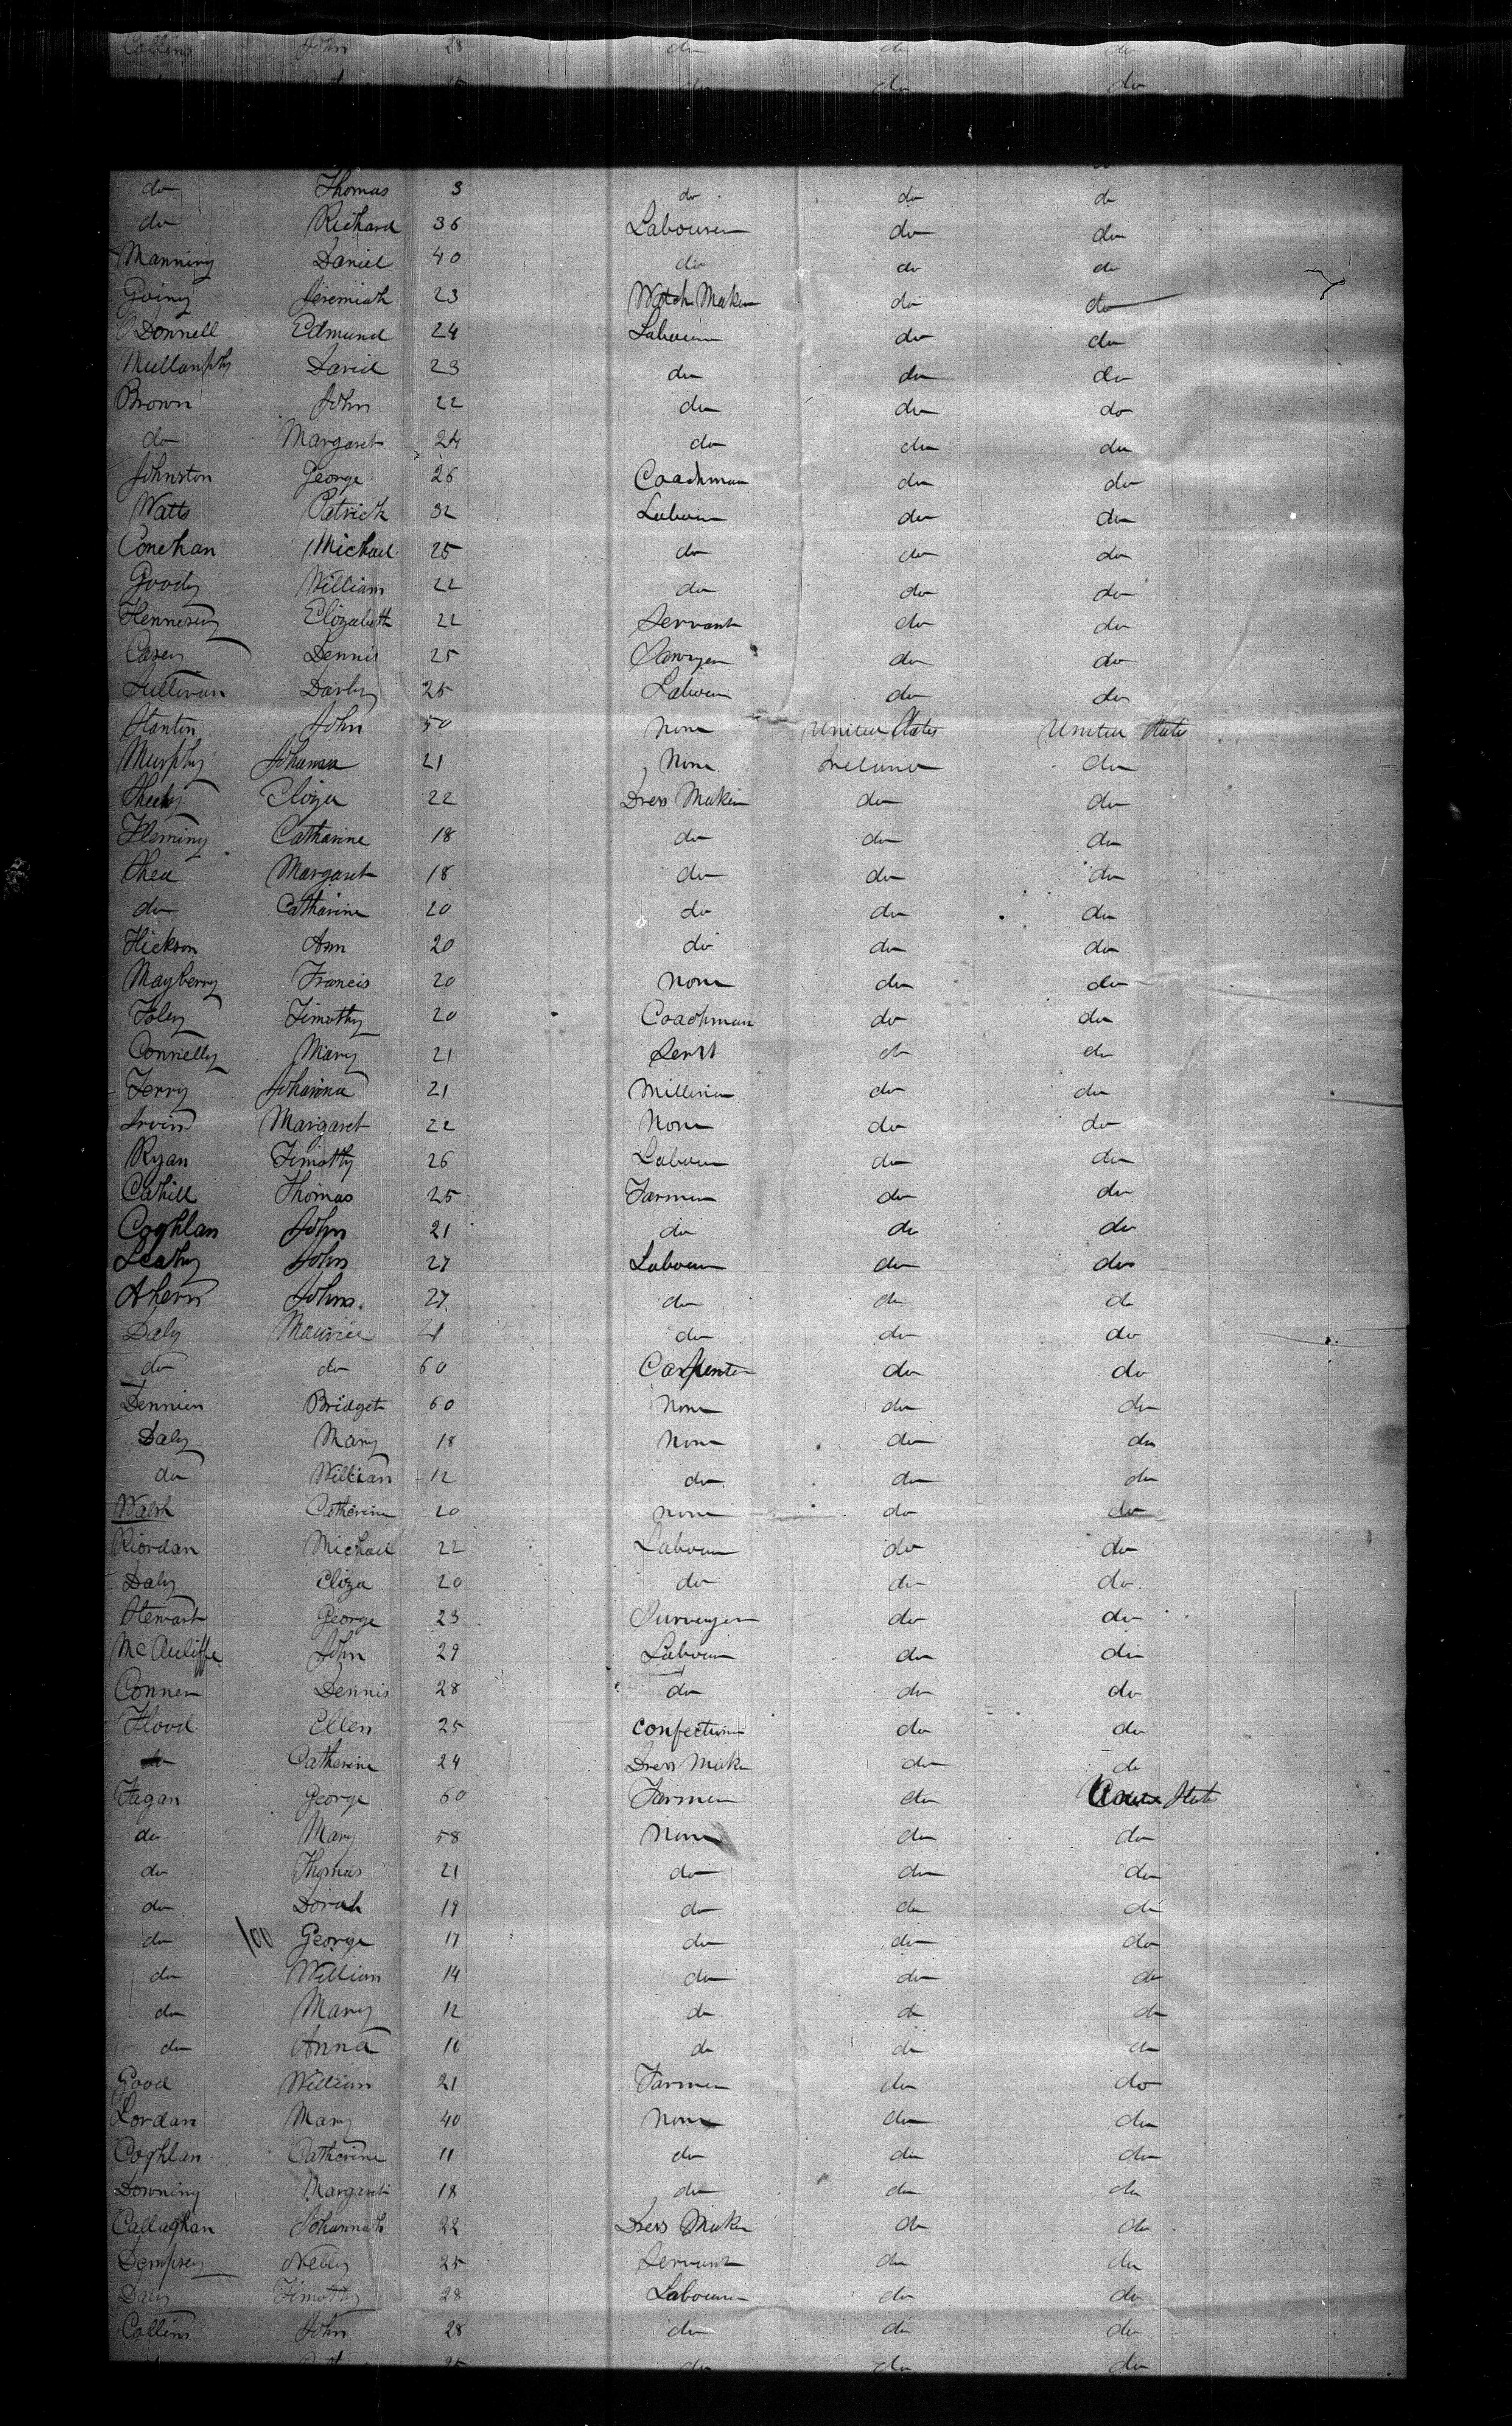 Collins John 28 do do do
do do do
do Thomas 3 do do do
do Richard 36 Labourer do do
Manning Daniel 40 do do do
Going Jeremiah 23 Watch Maker do do
O'Donnell Edmund 24 Labourer do do
Mullanphy David 23 do do do
Brown John 22 do do do
do Margaret 24 do do do
Johnston George 26 Coachman do do
Watts Patrick 32 Labour do do
Conehan Michael 25 do do do
Goody William 22 do do do
Hennesey Elizabeth 22 Servant do do
Casey Dennis 25 Sawyer do do
Sullivan Darby 25 Labour do do
Stanton John 50 None United States United States
Murphy Johanna 21 None Ireland do
Eliza 22 Dress Maker do do
Fleming Catharine 18 do do do
Shea Margaret 18 do do do
do Catharine 20 do do do
Hickson Ann 20 do do do
Mayberry Francis 20 None do do
Foley Timothy 20 Coachman do do
Connelly Mary 21 Servt do do
Terry Johanna 21 Milliner do do
Irvin Margaret 22 None do do
Ryan Timothy 26 Labour do do
Cahill Thomas 25 Farmer do do
Coghlan John 21 do do do
Leahy John 27 Labour do do
Ahern John 27 do do do
Daly Maurice 21 do do do
do do 60 Carpenter do do
Bridget 60 None do do
Daly Mary 18 None do do
do William 12 do do do
Walsh Catherine 20 None do do
Riordan Michael 22 Labour do do
Daly Eliza 20 do do do
Stewart George 23 Surveyor do do
McAuliffe John 29 Labour do do
Conner Dennis 28 do do do
Flood Ellen 25 Confectioner do do
do Catherine 24 Dress Maker do do
Fagan George 60 Farmer do States
do Mary 58 None do do
do Thomas 21 do do do
do Dorah 19 do do do
do 100 George 17 do do do
do William 14 do do do
do Mary 12 do do do
do Anna 10 do do do
Good William 21 Farmer do do
Lordan Mary 40 None do do
Coghlan Catherine 11 do do do
Downing Margaret 18 do do do
Callaghan Johannah 22 Dress Maker do do
Dempsey Nelly 25 Servant do do
Daly Timothy 28 Labourer do do
Collins John 28 do do do
25 do do do